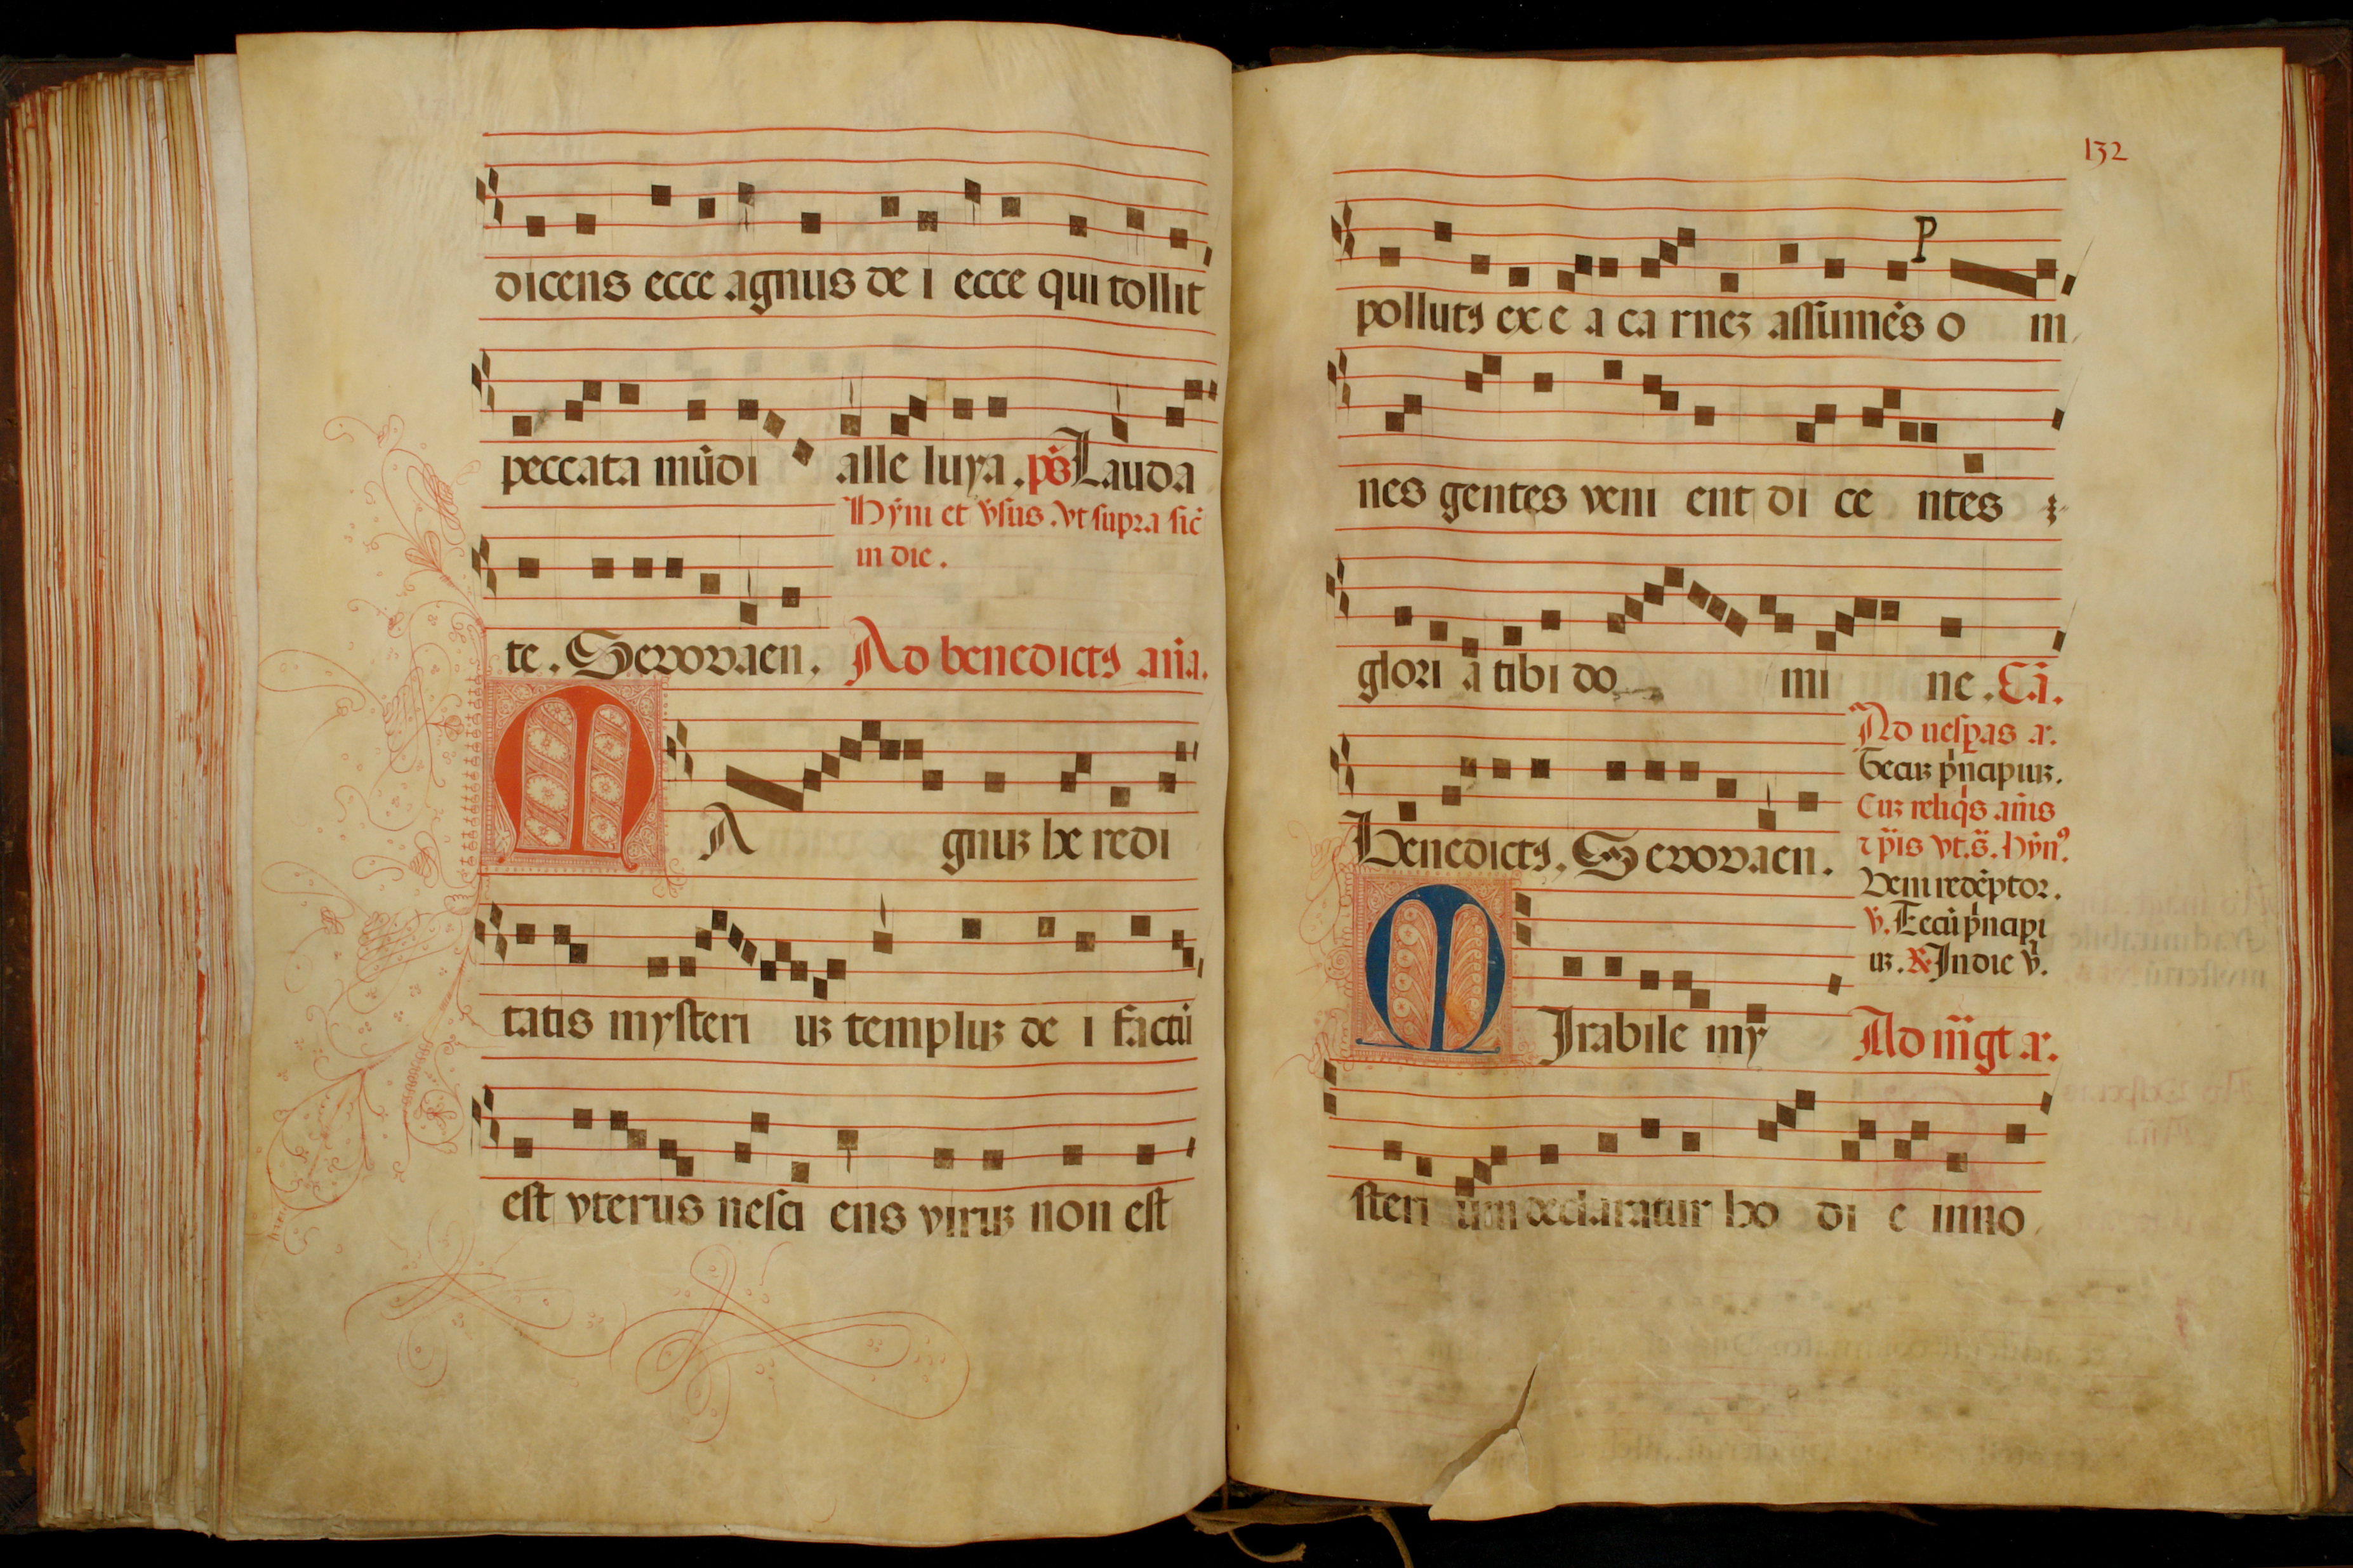 dicens ecce agnus de i ecce qui tollit
peccata mūdi alle luya . ps̄ Lauda
Hȳni et v̄sus . vt supra sic̄
in die .
te . Seuouaen . Ad benedictꝯ añ̄a .
M A gnuꝫ he redi
tatis mysteri uꝫ templuꝫ de i factū
est vterus nesci ens viruꝫ non est
132
P
pollutꝯ ex e a ca rneꝫ assumēs o m
nes gentes veni ent di ce ntes
glori a tibi do mi ne . Cā .
Ad uesꝑas a .
Tecuꝫ p̄ncipiuꝫ .
Cuꝫ reliq̄s an̄is
ꞇ p̄is vt . s̄ . hȳnꝰ .
Benedictꝯ . Seuouaen .
Veni redēptor .
v̄ . Tecū p̄ncipi
uꝫ . ℟ In die v̄ .
M Irabile my Ad m̄gt a .
steri um declaratur ho di e inno